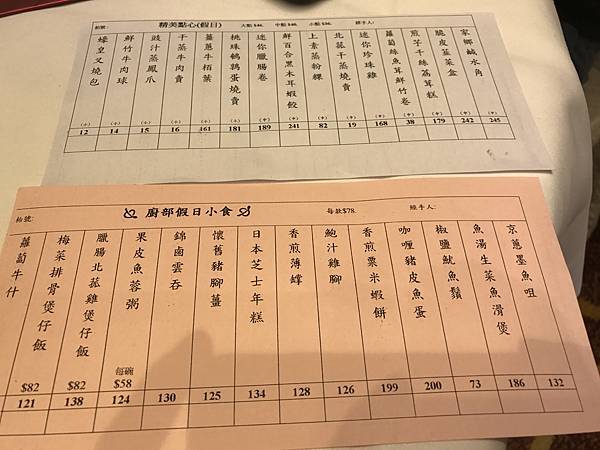 枱號: 精美點心(假日) 大點 $46. 中點 $46. 小點 $46. 經手人:
蠔皇叉燒包 (小) 12
鮮竹牛肉球 (小) 14
豉汁蒸鳳爪 (小) 15
干蒸牛肉賣 (小) 16
薑蔥牛栢葉 (小) 161
桃珠鵪鶉蛋燒賣 (小) 181
迷你臘腸卷 (中) 189
鮮百合黑木耳蝦餃 (中) 241
上素蒸粉粿 (中) 82
北菰干蒸燒賣 (中) 19
迷你珍珠雞 (中) 168
蘿蔔絲魚茸鮮竹卷 (中) 38
煎芋千絲荔茸糕 (中) 179
脆皮韮菜盒 (中) 242
家鄉鹹水角 (中) 245
枱號: 廚部假日小食 每款$78. 經手人:
蘿蔔牛什 $82 121
梅菜排骨煲仔飯 $82 138
臘腸北菰雞煲仔飯 每碗 $58 124
果皮魚蓉粥 130
錦鹵雲吞 125
懷舊豬腳薑 134
日本芝士年糕 128
香煎薄罉 126
鮑汁雞腳 199
香煎粟米蝦餅 200
咖喱豬皮魚蛋 73
椒鹽魷魚鬚 186
魚湯生菜魚滑煲 132
京蔥墨魚咀